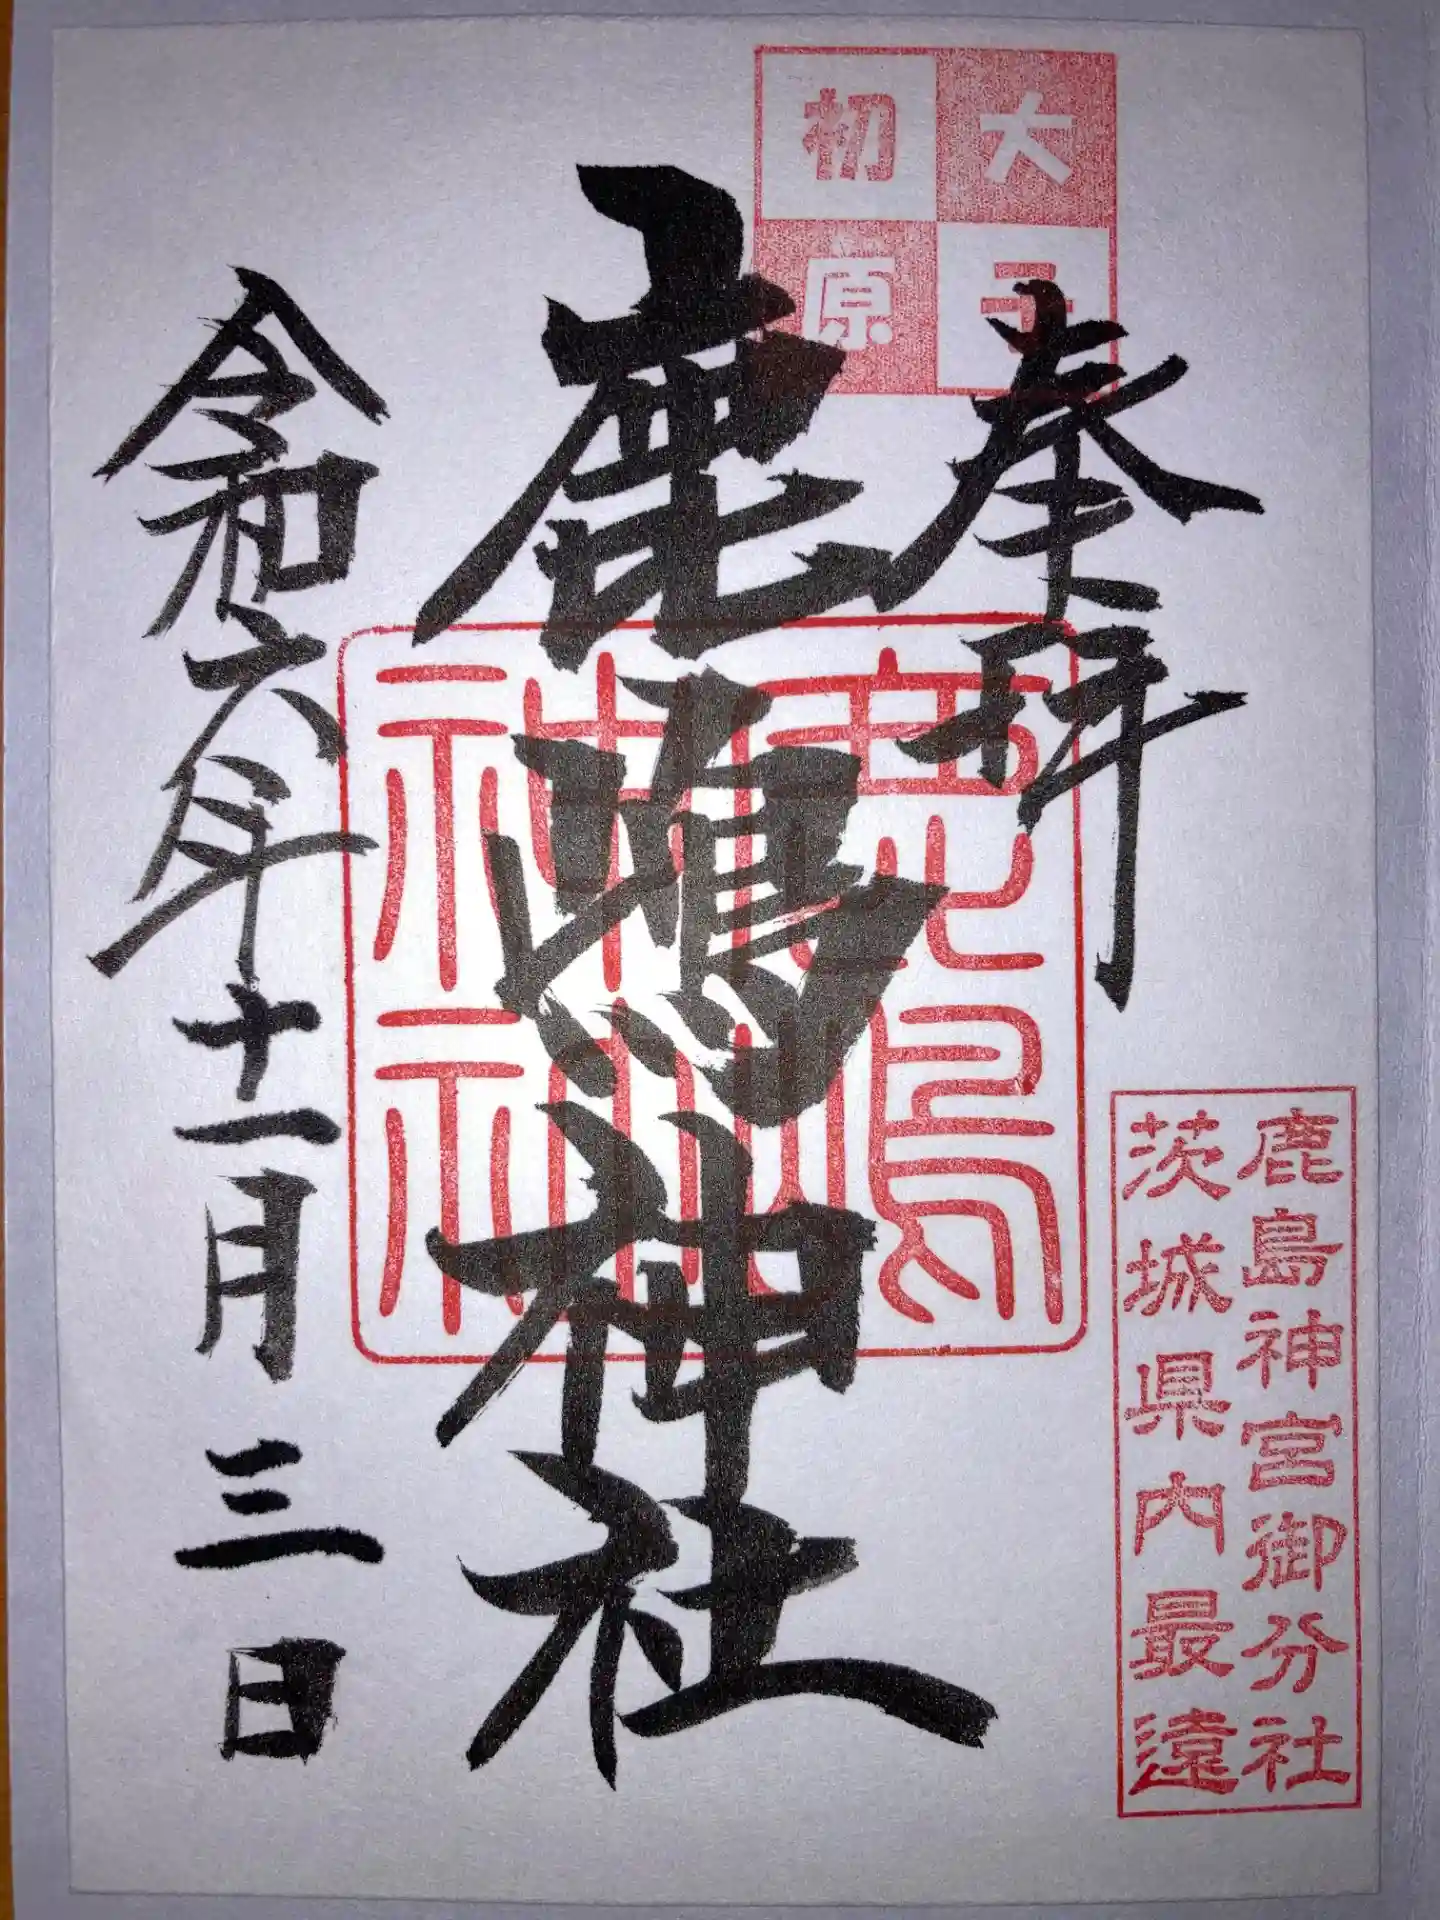 大子
初原
奉拝
鹿嶋神社
令和六年十一月三日
鹿嶋神社
鹿島神宮御分社
茨城県内最遠